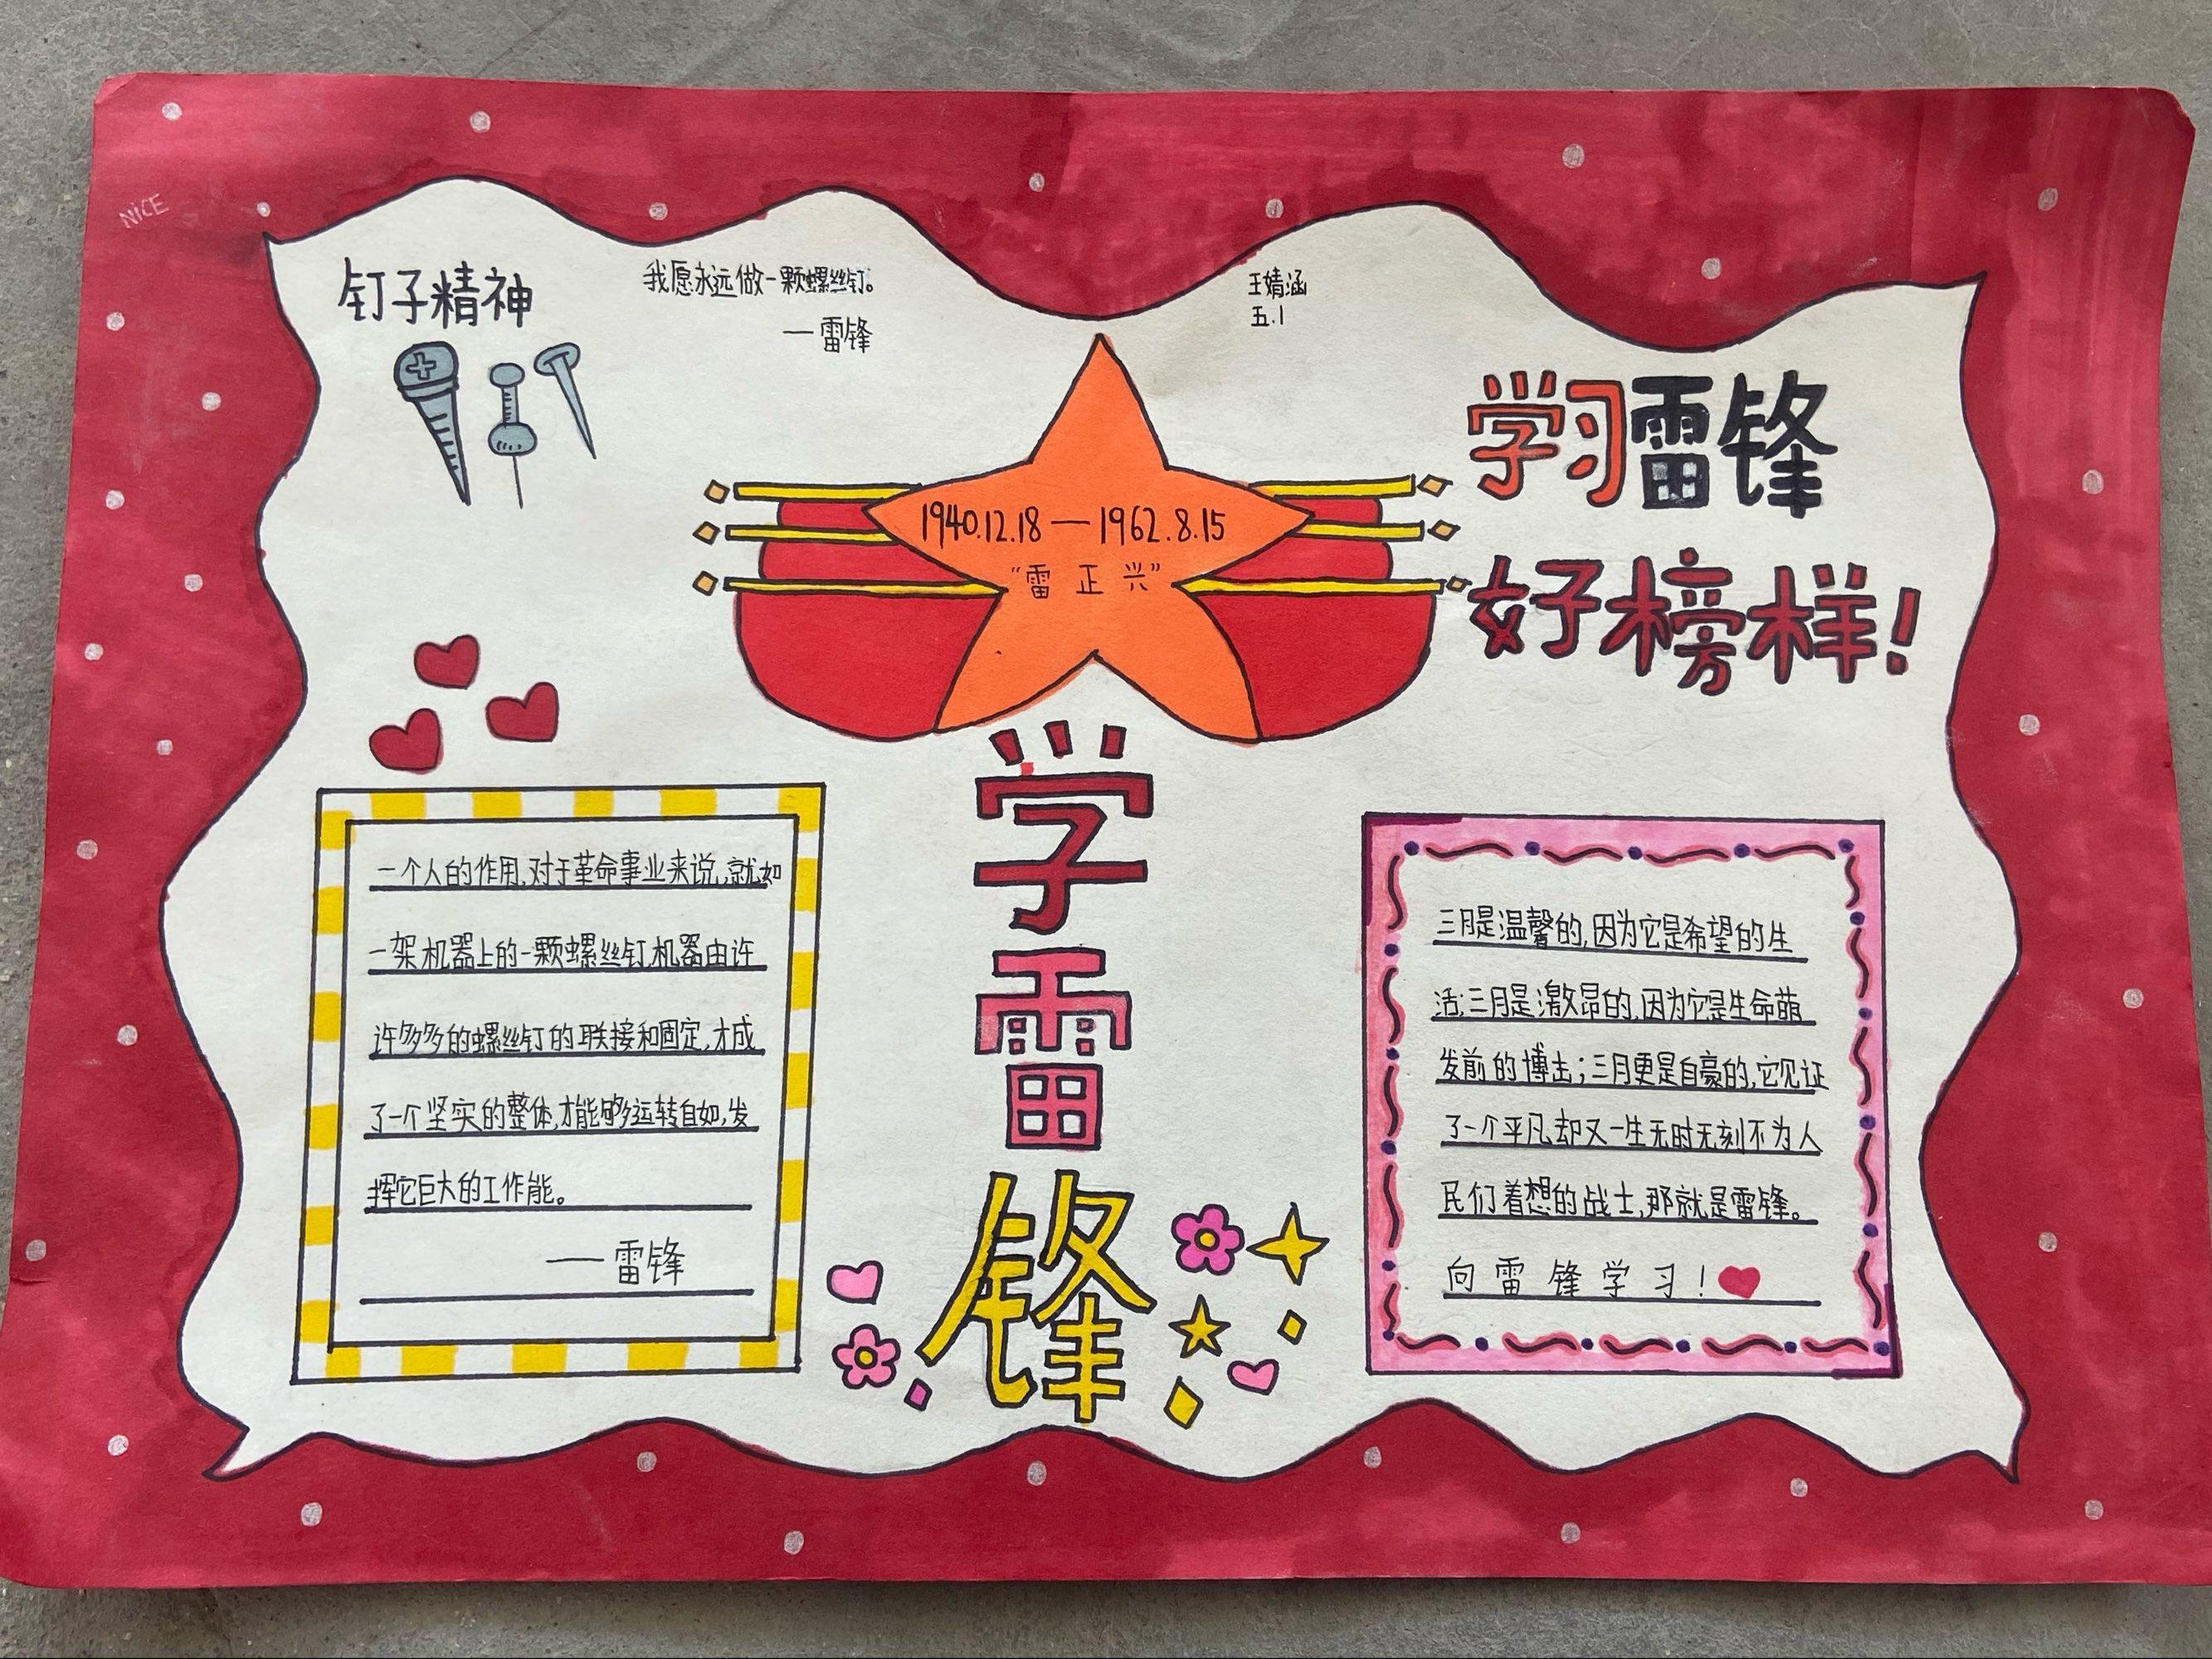 NICE
钉子精神
我愿永远做一颗螺丝钉。
—雷锋
王婧涵
五.1
学习雷锋
好榜样!
1940.12.18—1962.8.15
“雷正兴”
学
雷
锋
一个人的作用,对于革命事业来说,就如
一架机器上的一颗螺丝钉,机器由许
许多多的螺丝钉的联接和固定,才成
了一个坚实的整体,才能够运转自如,发
挥它巨大的工作能。
——雷锋
三月是温馨的,因为它是希望的生
活;三月是激昂的,因为它是生命萌
发前的博击;三月更是自豪的,它见证
了一个平凡却又一生无时无刻不为人
民们着想的战士,那就是雷锋。
向雷锋学习!